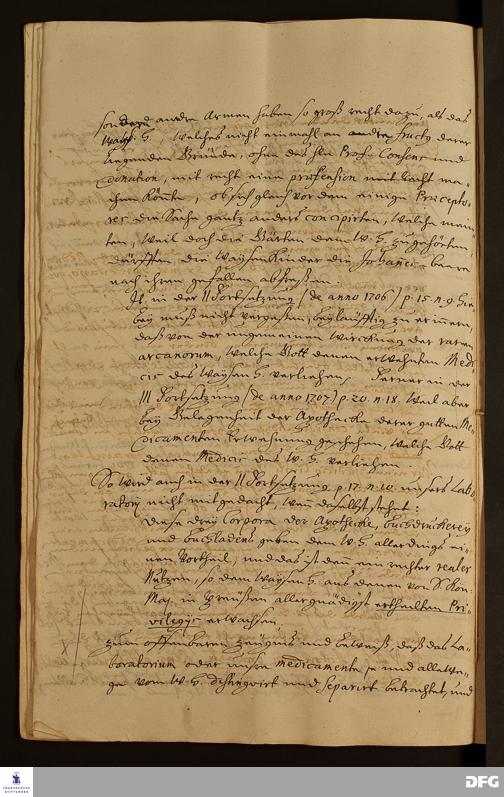 sondern andre Armen haben so groß recht dazu, als das
Ways. H. welches nicht einmahl an andre fructg derer
liegenden Gründe, ohne des Hn Prof. Consens und
Donation, mit recht eine praetension mit Recht ma-
chen könte, obschon gleich vor dem einige Praecepto-
res die Sache gantz anders concipirten, welche mein-
ten, weil doch die Gärten dem W. H. zugehörten,
dürfften die WaysenKinder die Johannes-beere
nach ihrem gefallen abfreßen.
It. in der II Fortsetzung (de anno 1706) p. 15. n. 9. Hie-
bey muß nicht vergeßen, beyläuffig zu erinnern,
daß von der ungemeinen Wirckung der rarern
arcanorum, welche Gott denen erwehnten Medi-
cis des Waysen H. verliehen. Ferner in der
III Fortsetzung (de anno 1707) p. 20. n. 18. Weil aber
bey Gelegenheit der Apothecke derer guten Me-
dicamenten Erwehnung geschehen, welche Gott
denen Medicis des W. H. verliehen.
So wird auch in der II Fortsetzung p. 17. n. 10. unsers Labo-
ratorij nicht mitgedacht, wen daselbst stehet:
diese drey Corpora der Apothecke, buchdruckerey
und buchladens geben dem W. H. allerdings ei-
nen Vortheil, und das ist den ein rechter realer
Nutzen, so dem Waysen H. aus denen von S. Kön.
Maj. in Preußen allergnädigst ertheilten Pri-
vilegijs erwachsen,
zum offenbaren zeugnis und beweiß, daß das La-
boratorium oder unsre medicamenta je und allewe-
ge vom W. H. distingvirt und separirt betrachtet, und
FRANCKESCHE
STIFTUNGEN
DFG